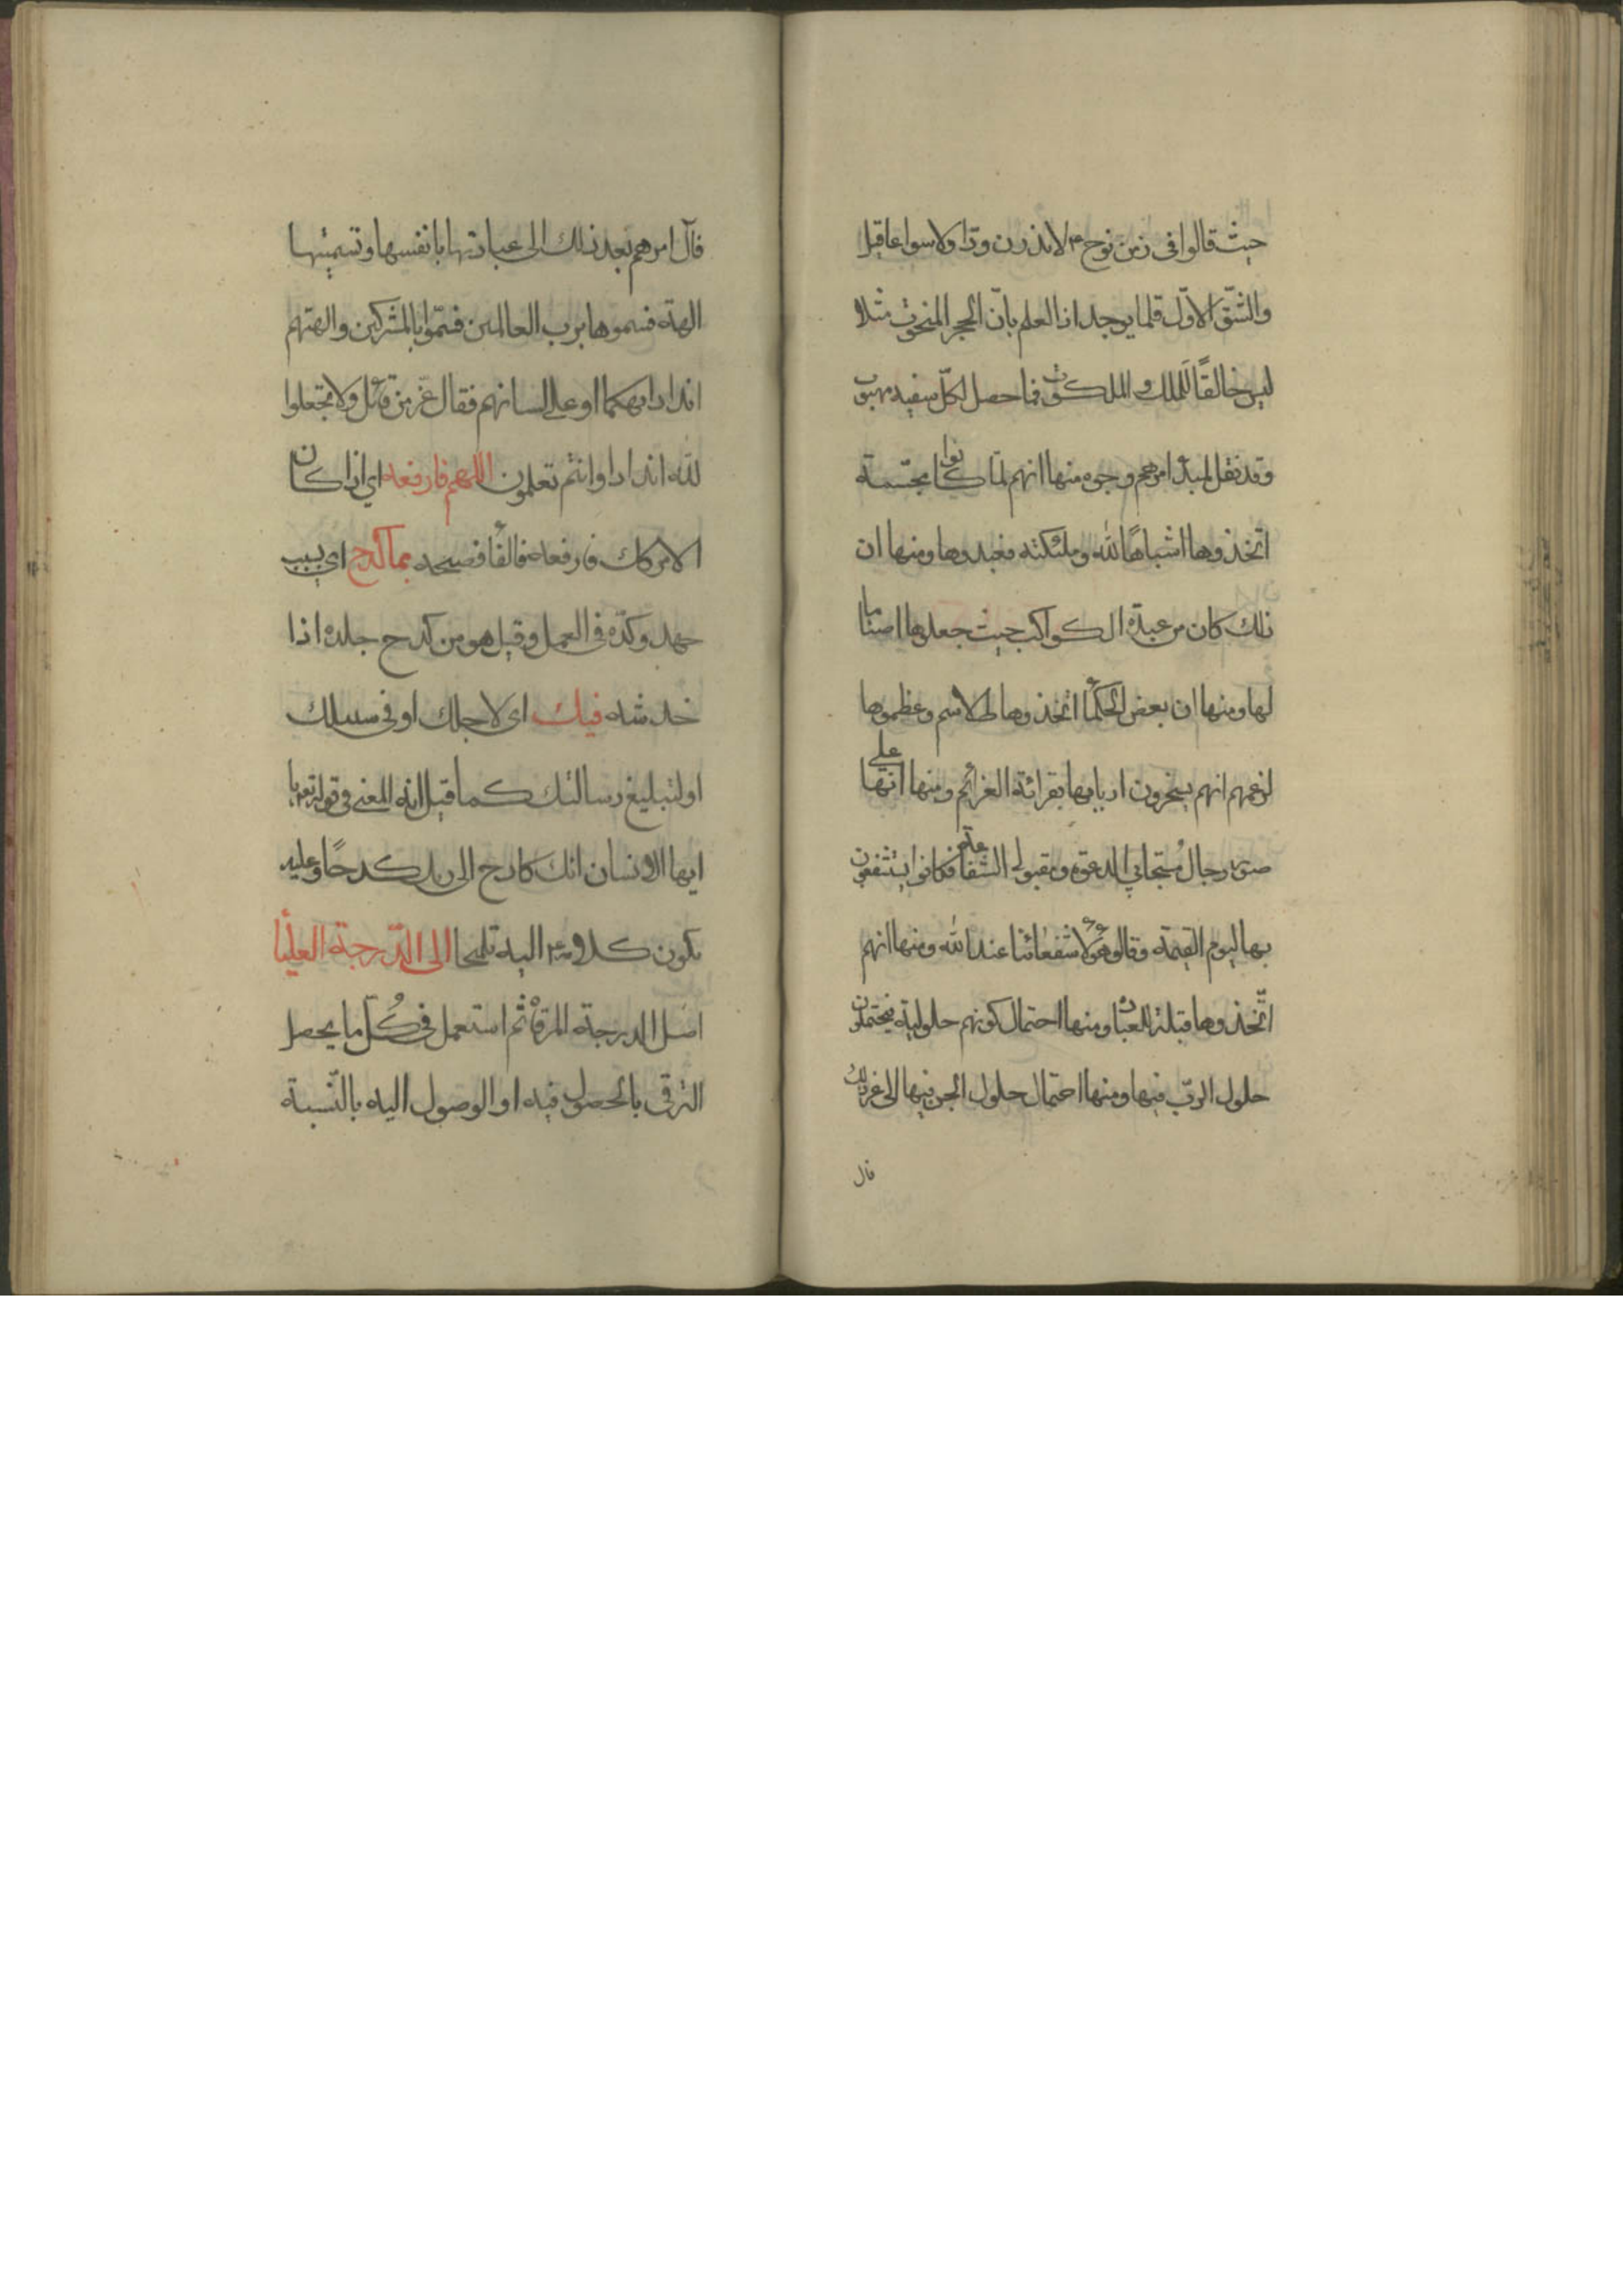 حيث قالوا فى زمن نوح ع لا تذرن ودا ولا سواعا قيل
والشق الاول قلما يوجد اذ العلم بان الحجر المنحوت مثلا
ليس خالقا للملك والملكوت فما حصل لكل سفيه مبهوت
وقد نقل لمبدا امرهم وجوه منها انهم لما كانوا مجسمة
اتخذوها اشباها لله وملئكته فعبدوها ومنها ان
ذلك كان من عبدة الكواكب حيث جعلوها اصناما
لها ومنها ان بعض الحكماء اتخذوها طلاسم وعظموها
لزعمهم انهم يسخرون اربابها بقرائة العزائم ومنها انها على
صور رجال مستجابي الدعوة ومقبولى الشفاعة فكانوا يستشفعون
بها ليوم القيمة وقالوا هؤلاء شفعائنا عند الله ومنها انهم
اتّخذوها قبلة للعبادة ومنها احتمال كونهم حلولية فيحتملون
حلول الربّ فيها ومنها احتمال حلول الجن فيها الى غير ذلك
فآل
فآل امرهم بعد ذلك الى عبادتها بانفسها وتسميتها
الهة فسموها برب العالمين فسمّوا بالمشركين والهتهم
اندادا تهكما او على لسانهم فقال عز من قائل ولا تجعلوا
لله اندادا وانتم تعلمون اللهم فارفعه اي اذا كان
الامر كك فارفعه فالفاء فصيحه بما كدح اي بسبب
جهده وكدّه فى العمل وقيل هو من كدح جلده اذا
خدشه فيك اى لاجلك او فى سبيلك
او لتبليغ رسالتك كما قيل انه المعنى فى قوله تعه يا
ايها الانسان انك كادح الى ربك كدحا وعليه
يكون كلامه ع اليه تلميحا الى الدّرجة العليا
اصل الدرجة المرقاة ثم استعمل فى كُلّ ما يحصل
الترقى بالحصول فيه او الوصول اليه بالنّسبة